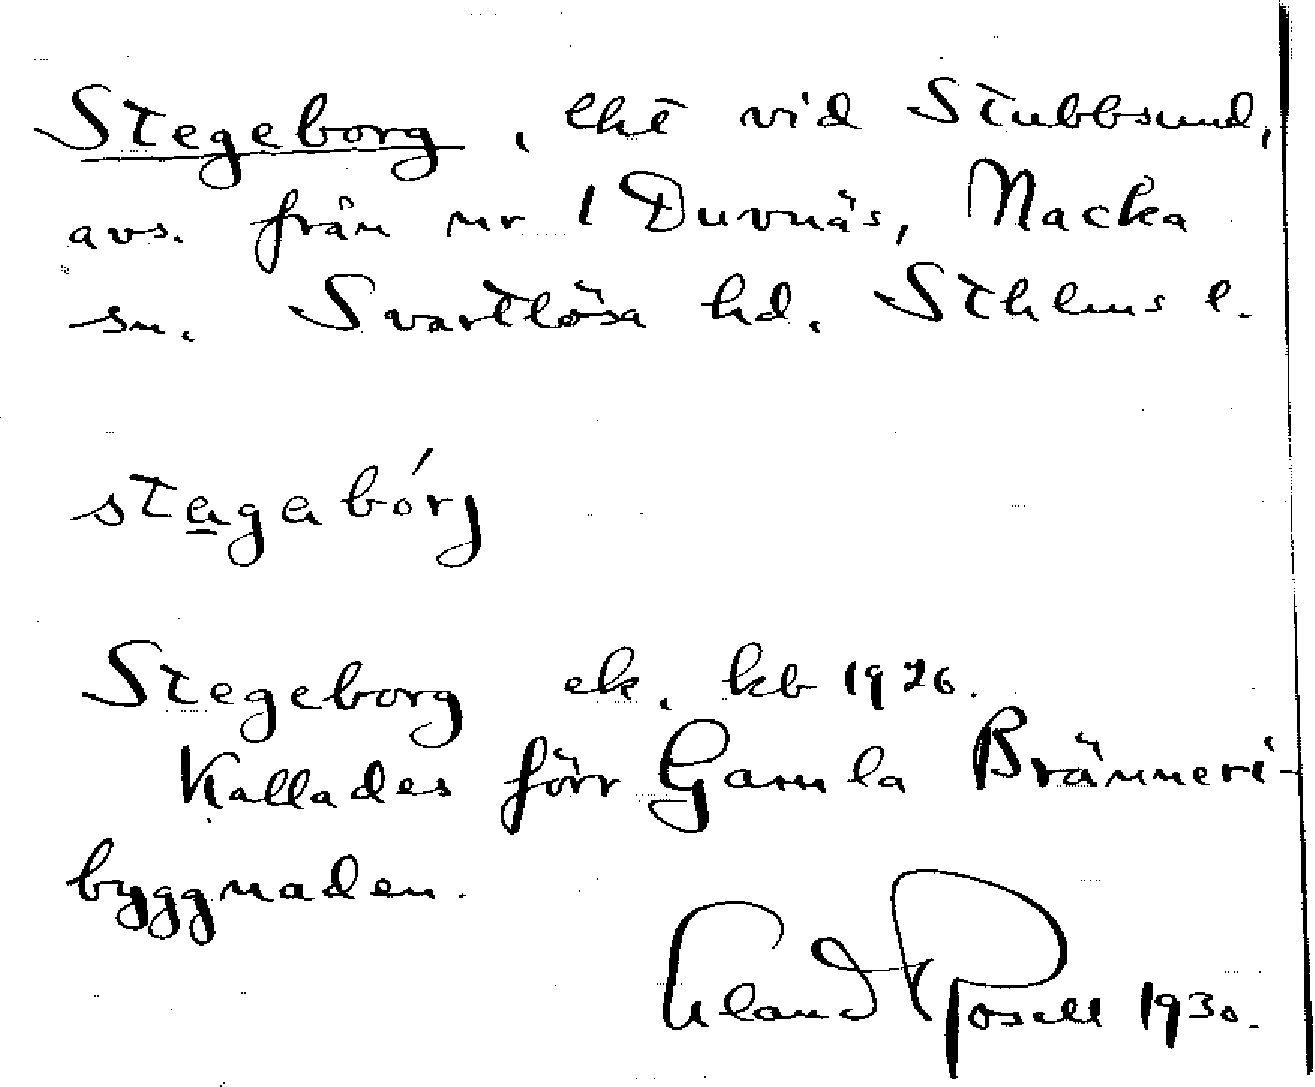 Stegeborg, lht vid Stubbsund,
avs. från nr 1 Duvnäs, Nacka
sn. Svartlösa hd. Sthlms l.
stegabórj
Stegeborg ek. kb 1926.
Kallades förr Gamla Bränneri-
byggnaden.
Erland Rosell 1930.